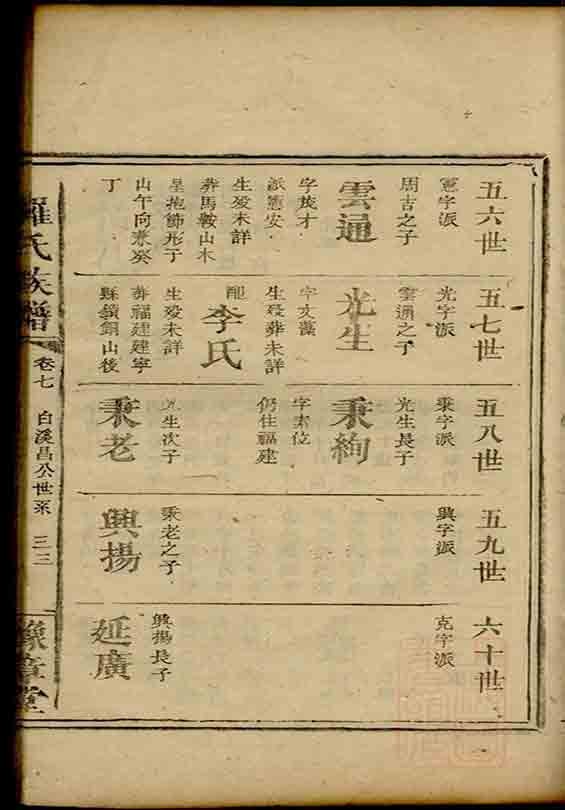 五六世
憲字派
周古之子
雲通
字茂才
派憲安
生歿未詳
葬馬鞍山木
星抱節形子
山午向兼癸
丁
五七世
光字派
雲通之子
光生
字文藻
生歿葬未詳
配
李氏
生歿未詳
葬福建建寧
縣鎮銅山後
五八世
秉字派
光生長子
秉絢
字素位
仍住福建
光生次子
秉老
五九世
興字派
秉老之子
興揚
六十世
克字派
興揚長子
延廣
羅氏族譜
卷七
白溪昌公世系
三三
豫章堂